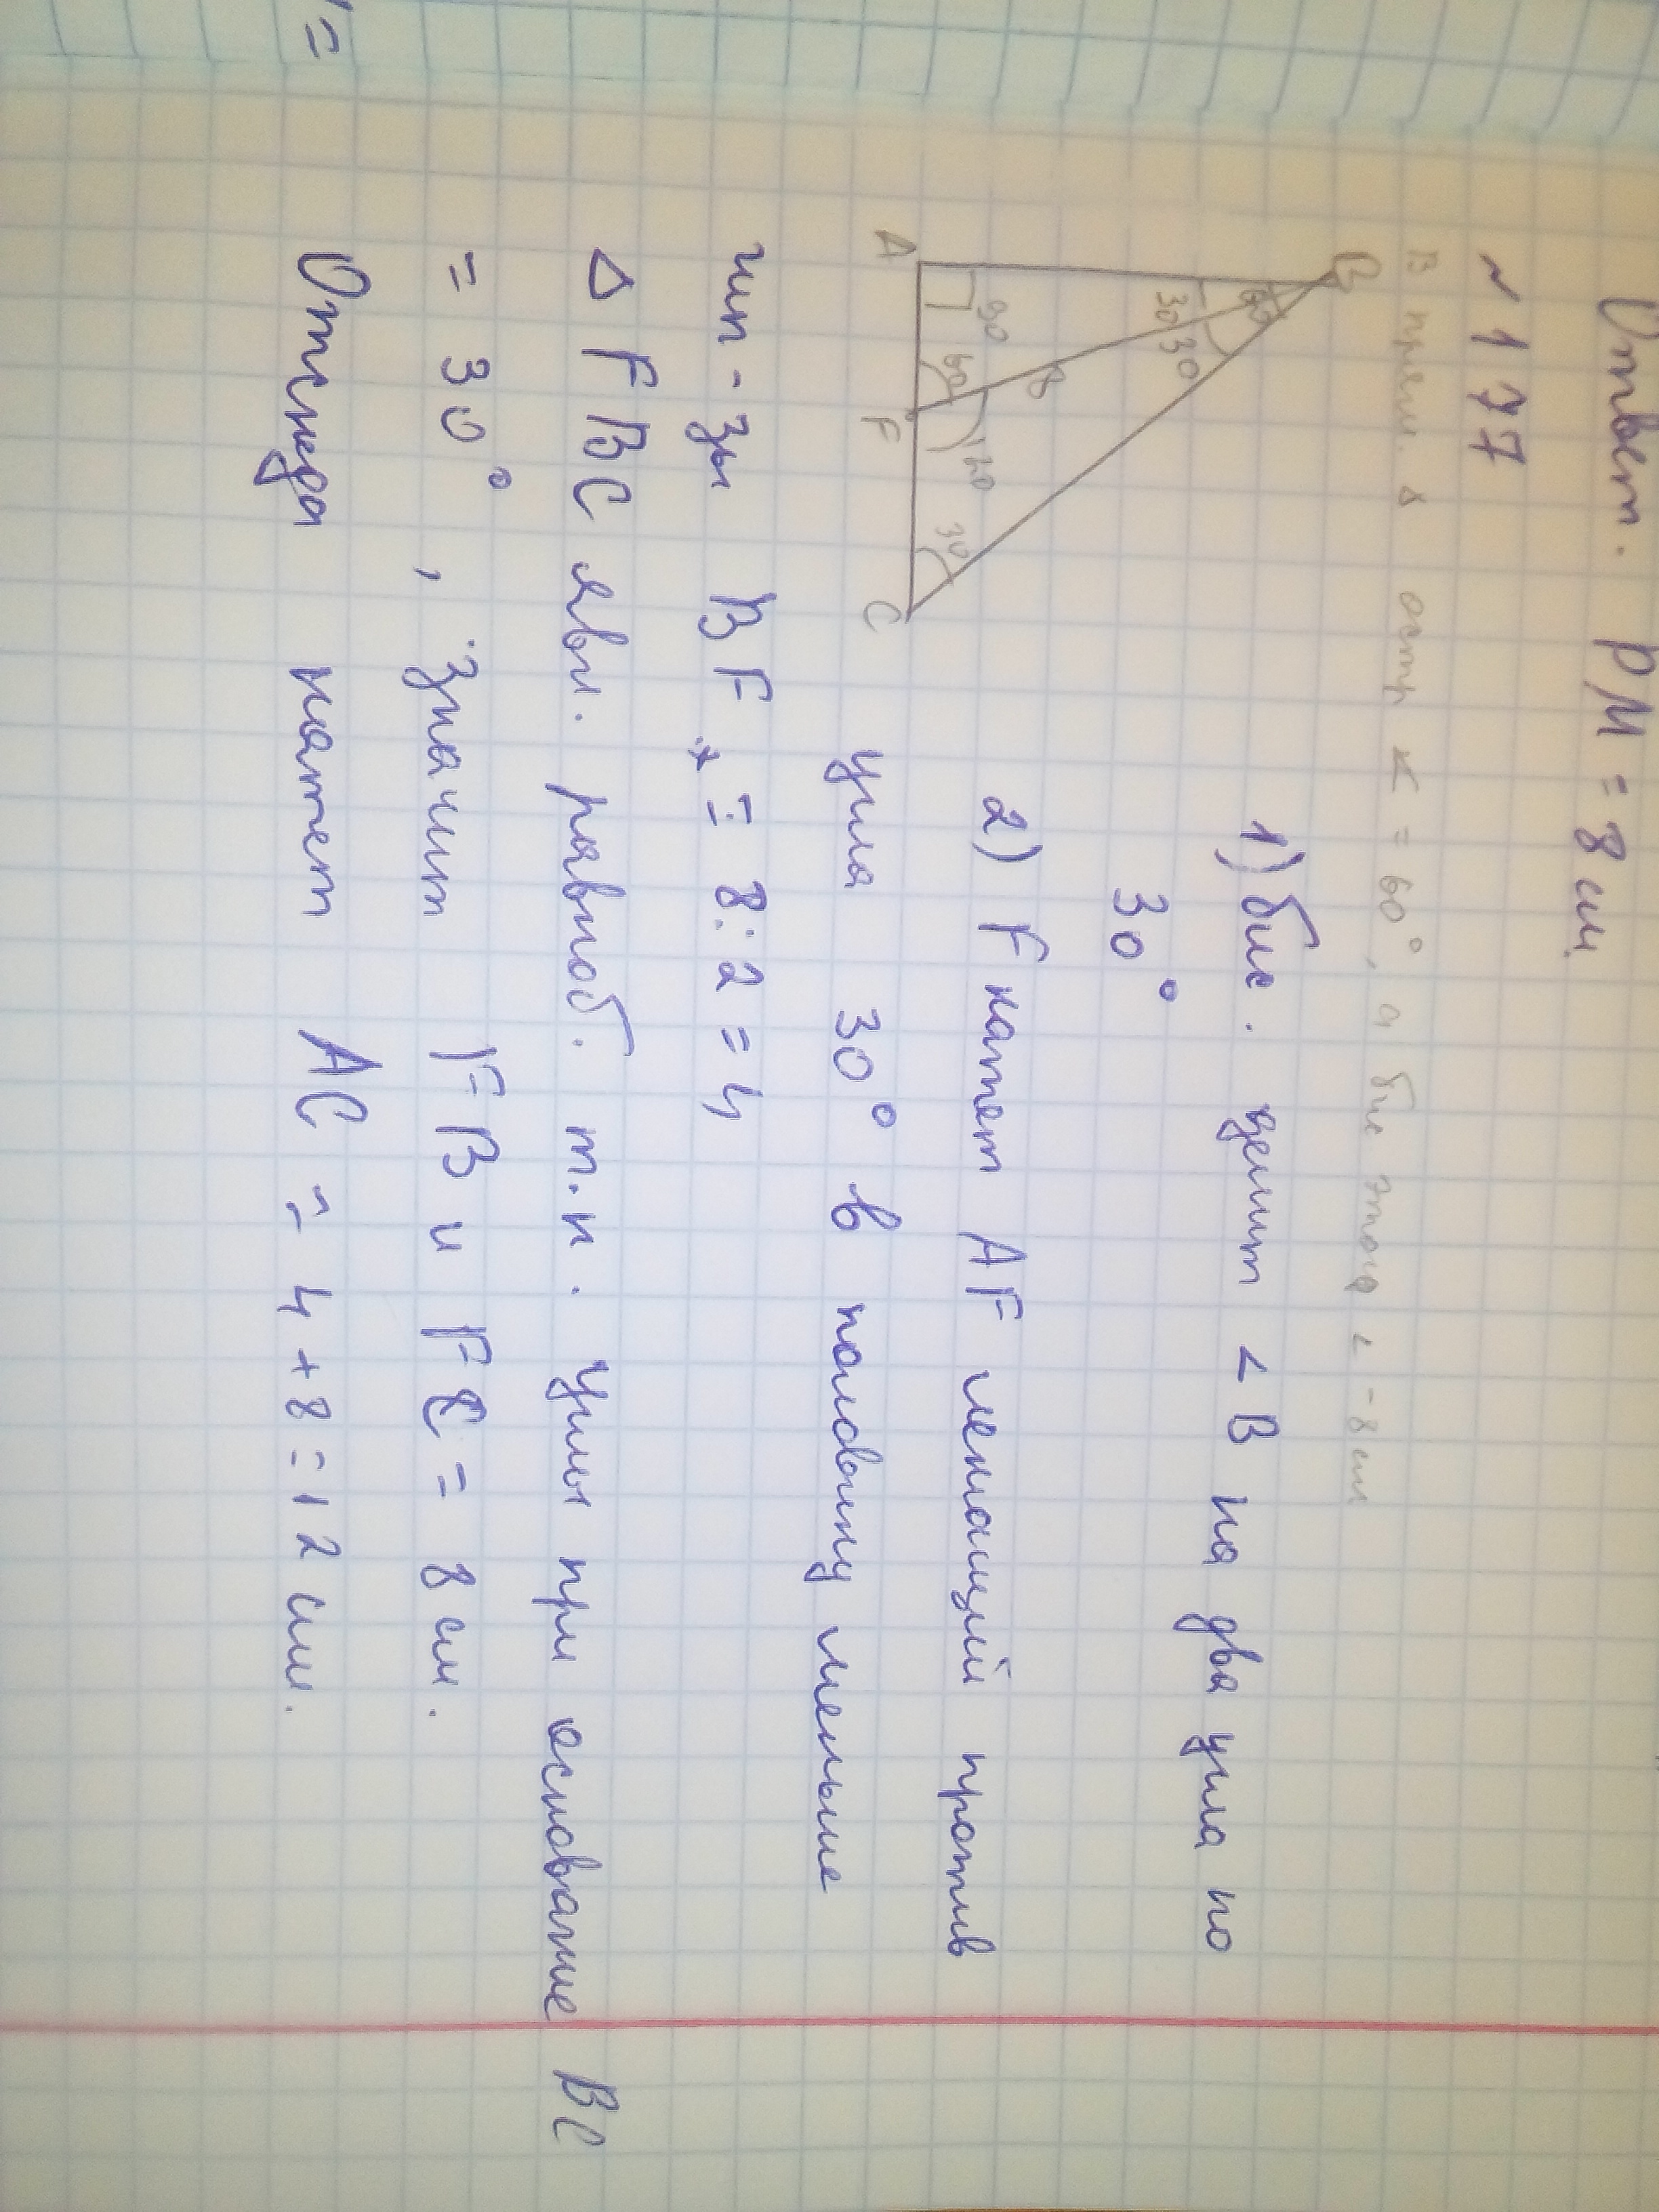 Ответ. PM = 8 см
~ 177
В прям. Δ остр ∠ = 60°, а бис этого ∠ - 8 см
B
60
30 30
8
90
60
120
30
A
F
C
1) бис. делит < B на два угла по
30°
2) F катет AF лежащий против
угла 30° в половину меньше
гип-зы BF = 8:2=4
Δ FBC явл. равноб. т.к. углы при основание BC
= 30°, значит FB и FC = 8 см.
Отсюда катет AC = 4+8=12 см.
=